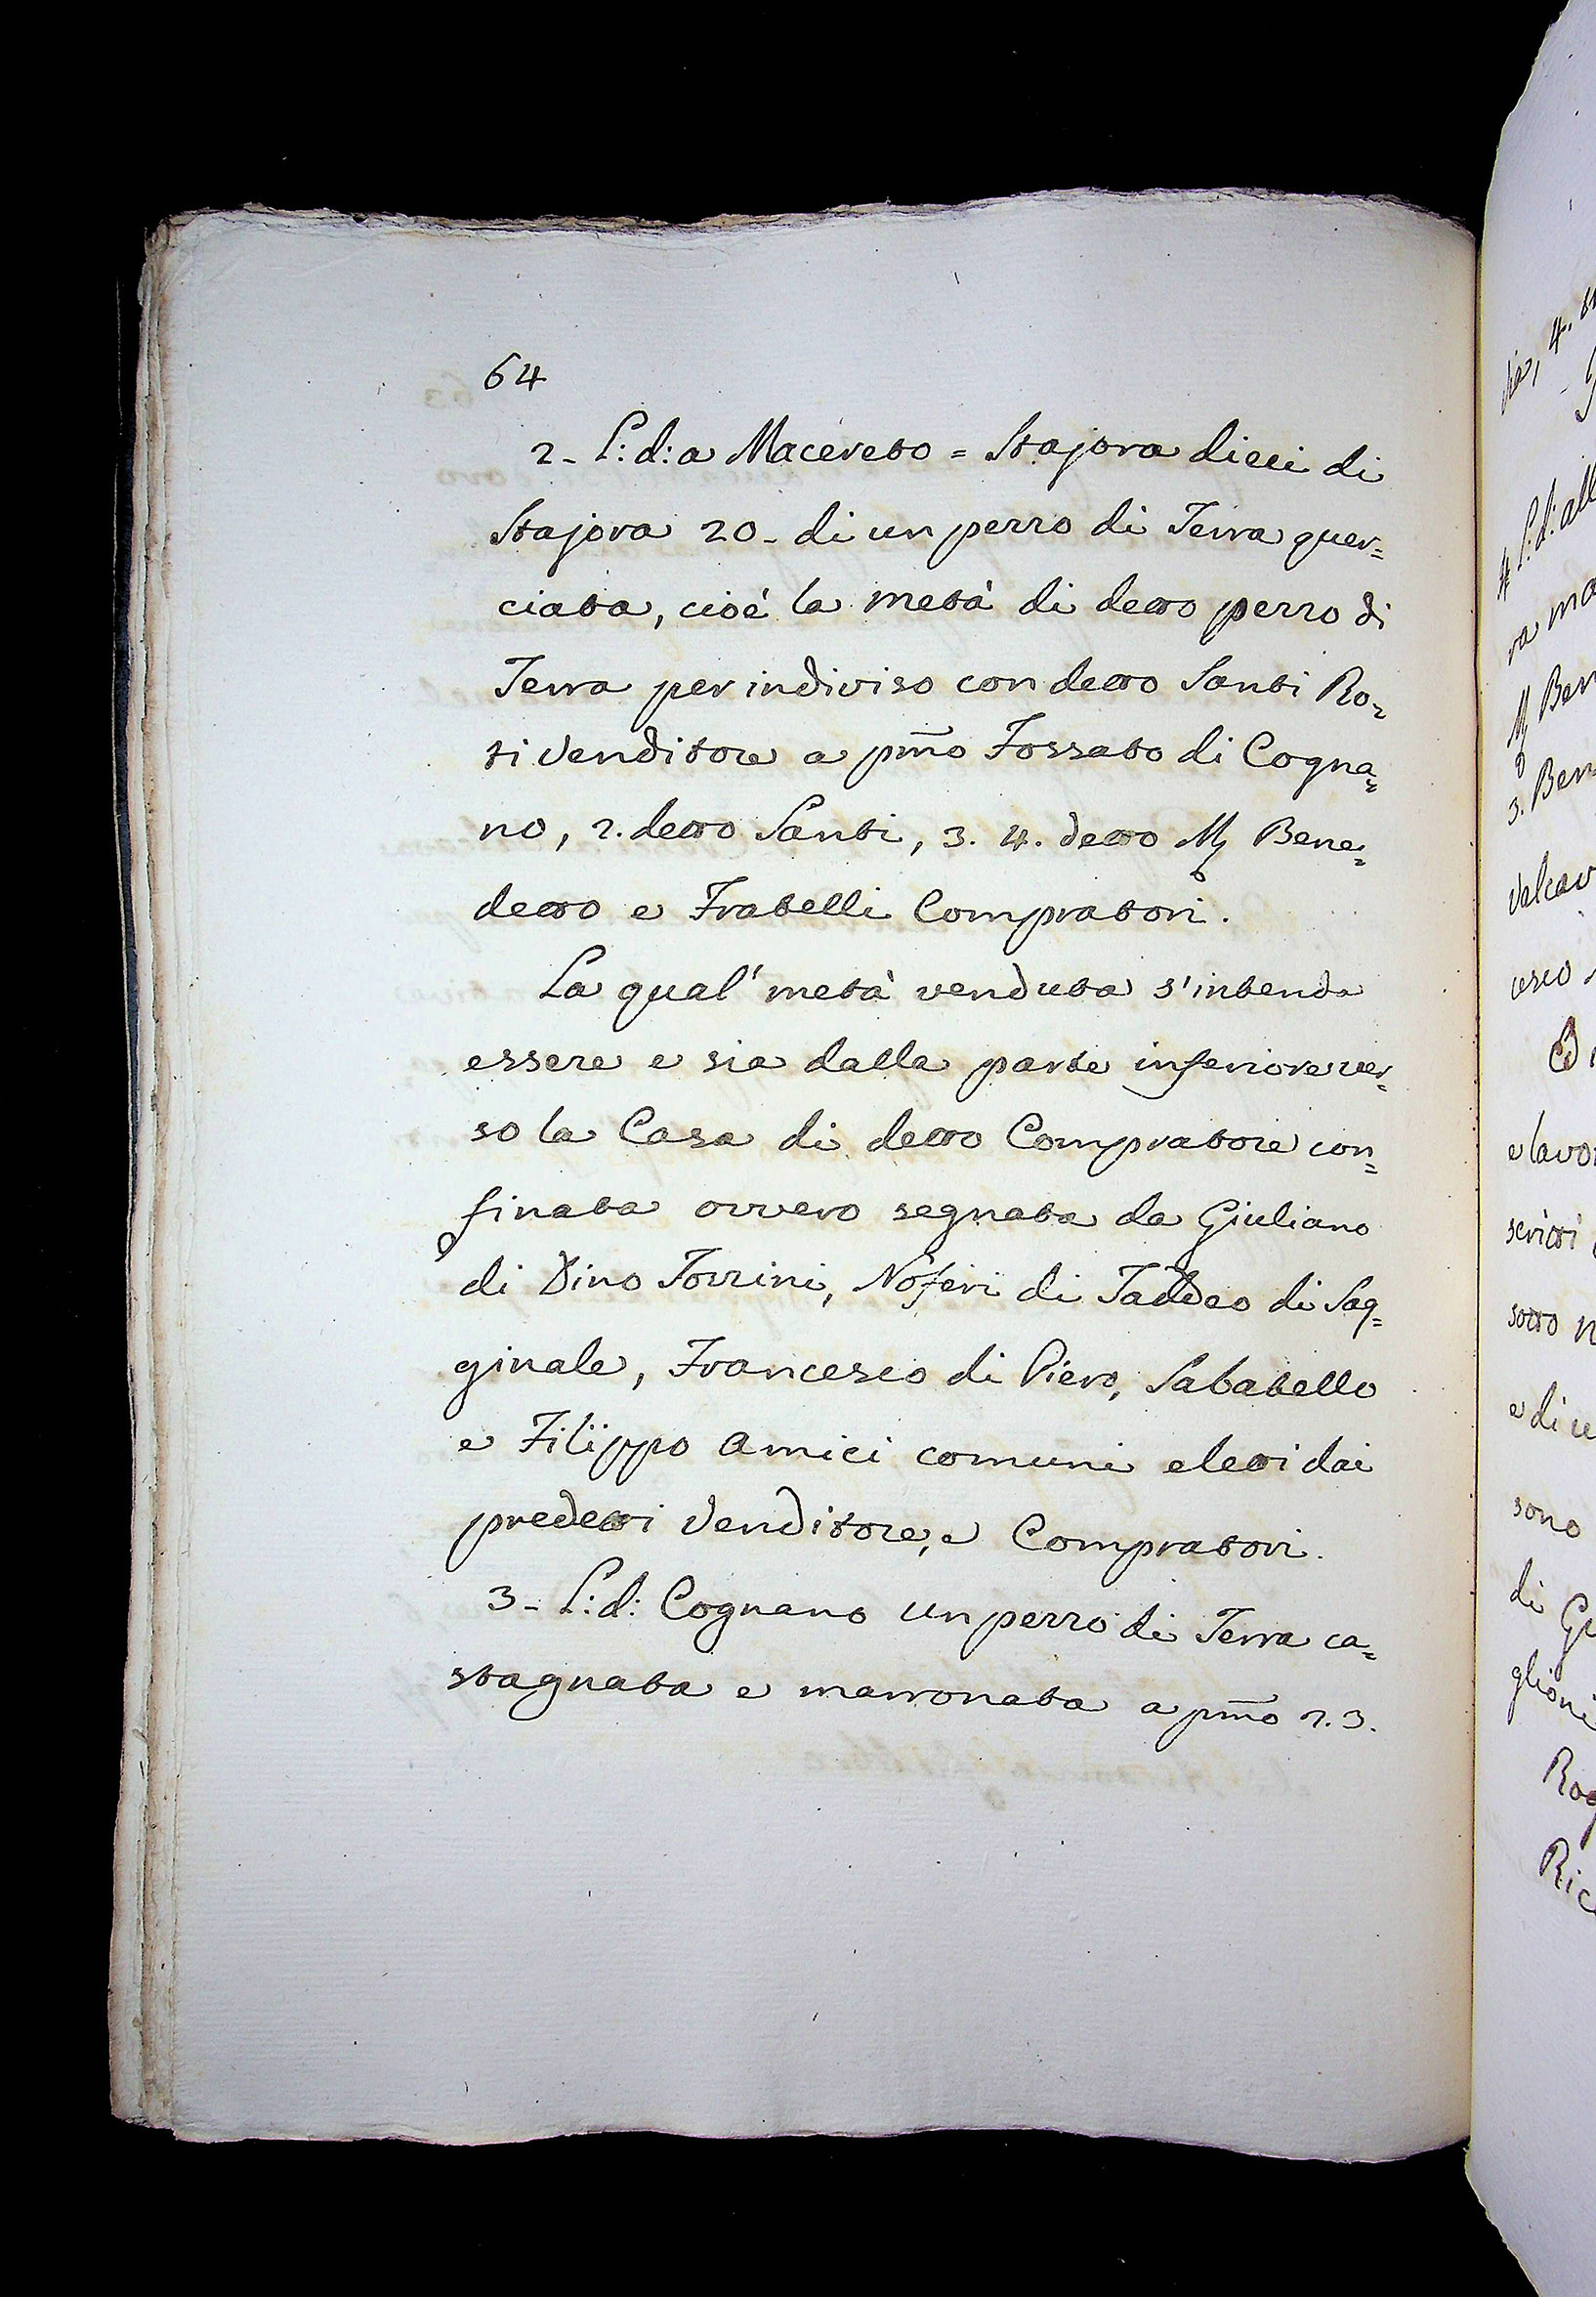 64
2- L: d: a Macereto = Stajora dieci di
Stajora 20- di un pezzo di Terra quer=
ciata, cioé la metà di detto pezzo di
Terra per indiviso con detto Santi Ro=
ti Venditore a pmo Fossato di Cogna=
no, 2. detto Santi, 3. 4. detto Mg Bene=
detto e Fratelli Compratori.
La qual' metà venduta s'intenda
essere e sia dalla parte inferiore ver=
so la Casa di detto Compratore con=
finata ovvero segnata da Giuliano
di Dino Torrini, Noferi di Taddeo di Sag=
ginale, Francesco di Piero, Sabatello
e Filippo Amici comuni eletti dai
predetti Venditore, e Compratori.
3- L: d: Cognano un pezzo di Terra ca=
stagnata e marronata a pmo 2. 3.
4 L: d: all
ra ma
Mg Ben
3. Ben
Valcav
e lavo
scritti
sotto n
e di u
sono
di Gi
glioni
Rog
Ric